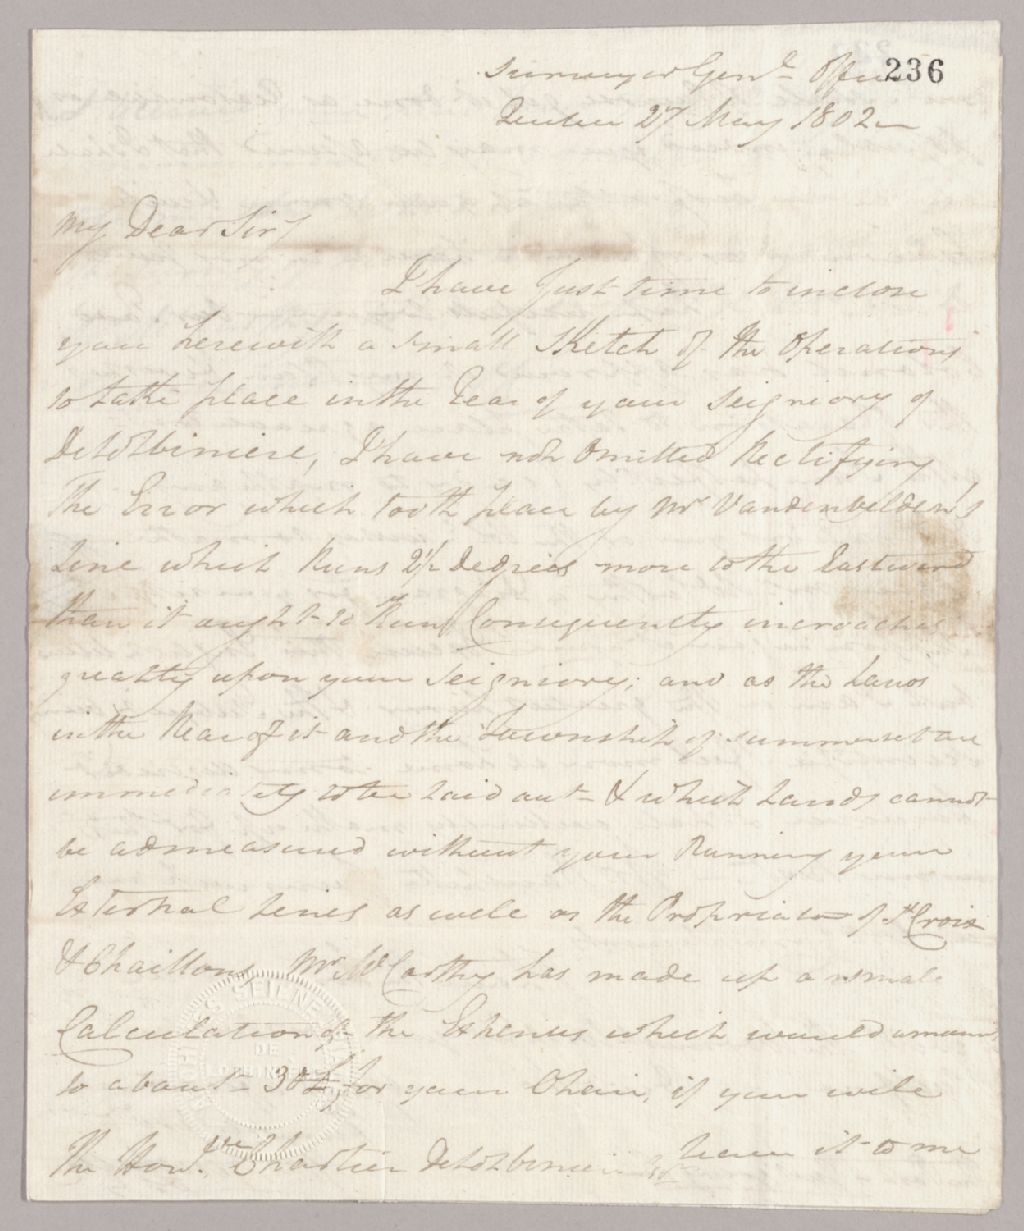 236
Surveyor Genl. Office
Quebec 27 May 1802
My Dear Sir
I have Just time to inclose
you herewith a small Sketch of the Operations
to take place in the Rear of your Seigniory of
DeLotbiniere, I have not Omitted Rectifying
The Error which took place by Mr Vandenvelden's
Line which Runs 2½ degrees more to the Eastward
than it aught to Run Consequently incroaches
greatly upon your Seigniory; and as the Lands
in the Rear of it and the Township of Summerset are
immediately to be laid out & which Lands cannot
be admeasured without your Running your
External Lines as well as the Proprietor of St Croix
& Chaillons, Mr McCarthy has made up a small
Calculation of the Expenses which would amount
to about 30£ for your Share, if you will
leave it to me
The Honl. Chartier DeLotbiniere
SEIGNE
DE
LOTBINI